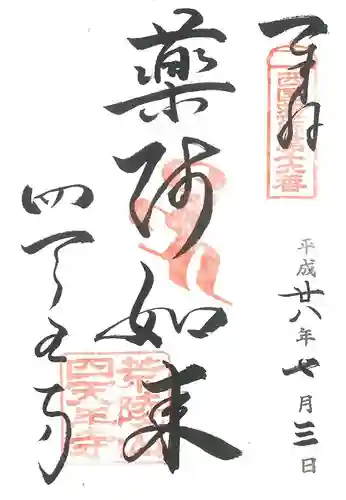 奉拝
西国薬師第十六番
平成廿八年七月三日
藥師如来
四天王寺
荒陵山
四天王寺